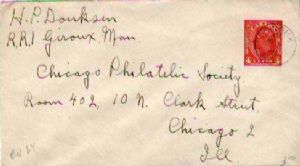 H. P. Doerksen
R.R.1 Giroux, Man
Chicago Philatelic Society
Room 402, 10 N. Clark Street,
Chicago 2
Ill.